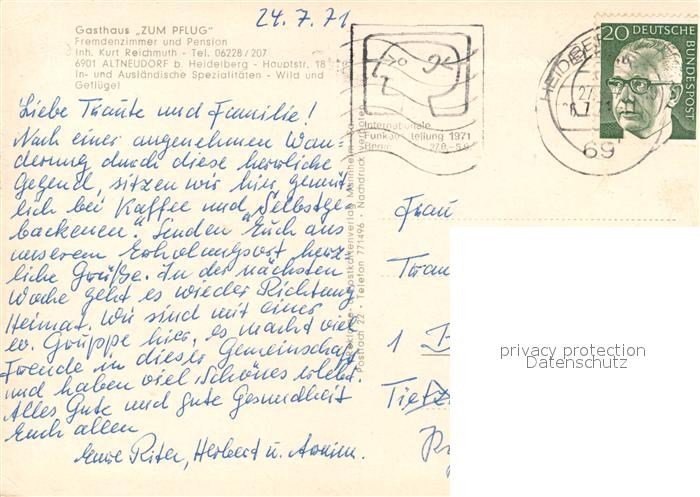 24.7.71
Gasthaus „ZUM PFLUG“
Fremdenzimmer und Pension
Inh. Kurt Reichmuth - Tel. 06228/207
6901 ALTNEUDORF b. Heidelberg - Hauptstr. 18
In- und Ausländische Spezialitäten - Wild und
Geflügel
Liebe Traute und Familie!
Nach einer angenehmen Wan-
derung durch diese herrliche
Gegend, sitzen wir hier gemüt-
lich bei Kaffee und „Selbstge-
backenen“. Senden Euch aus
unserem Erholungsort herz-
liche Grüße. In der nächsten
Woche geht es wieder Richtung
Heimat. Wir sind mit einer
ev. Gruppe hier, es macht viel
Freude in dieser Gemeinschaft
und haben viel Schönes erlebt.
Alles Gute und gute Gesundheit
Euch allen
Eure Herbert u.
Internationale
1971
27.8.-5.9.
Postfach 22 · Telefon 771496 · Nachdruck verboten
HEIDELBERG
69
20 DEUTSCHE
BUNDESPOST
Frau
1
privacy protection
Datenschutz